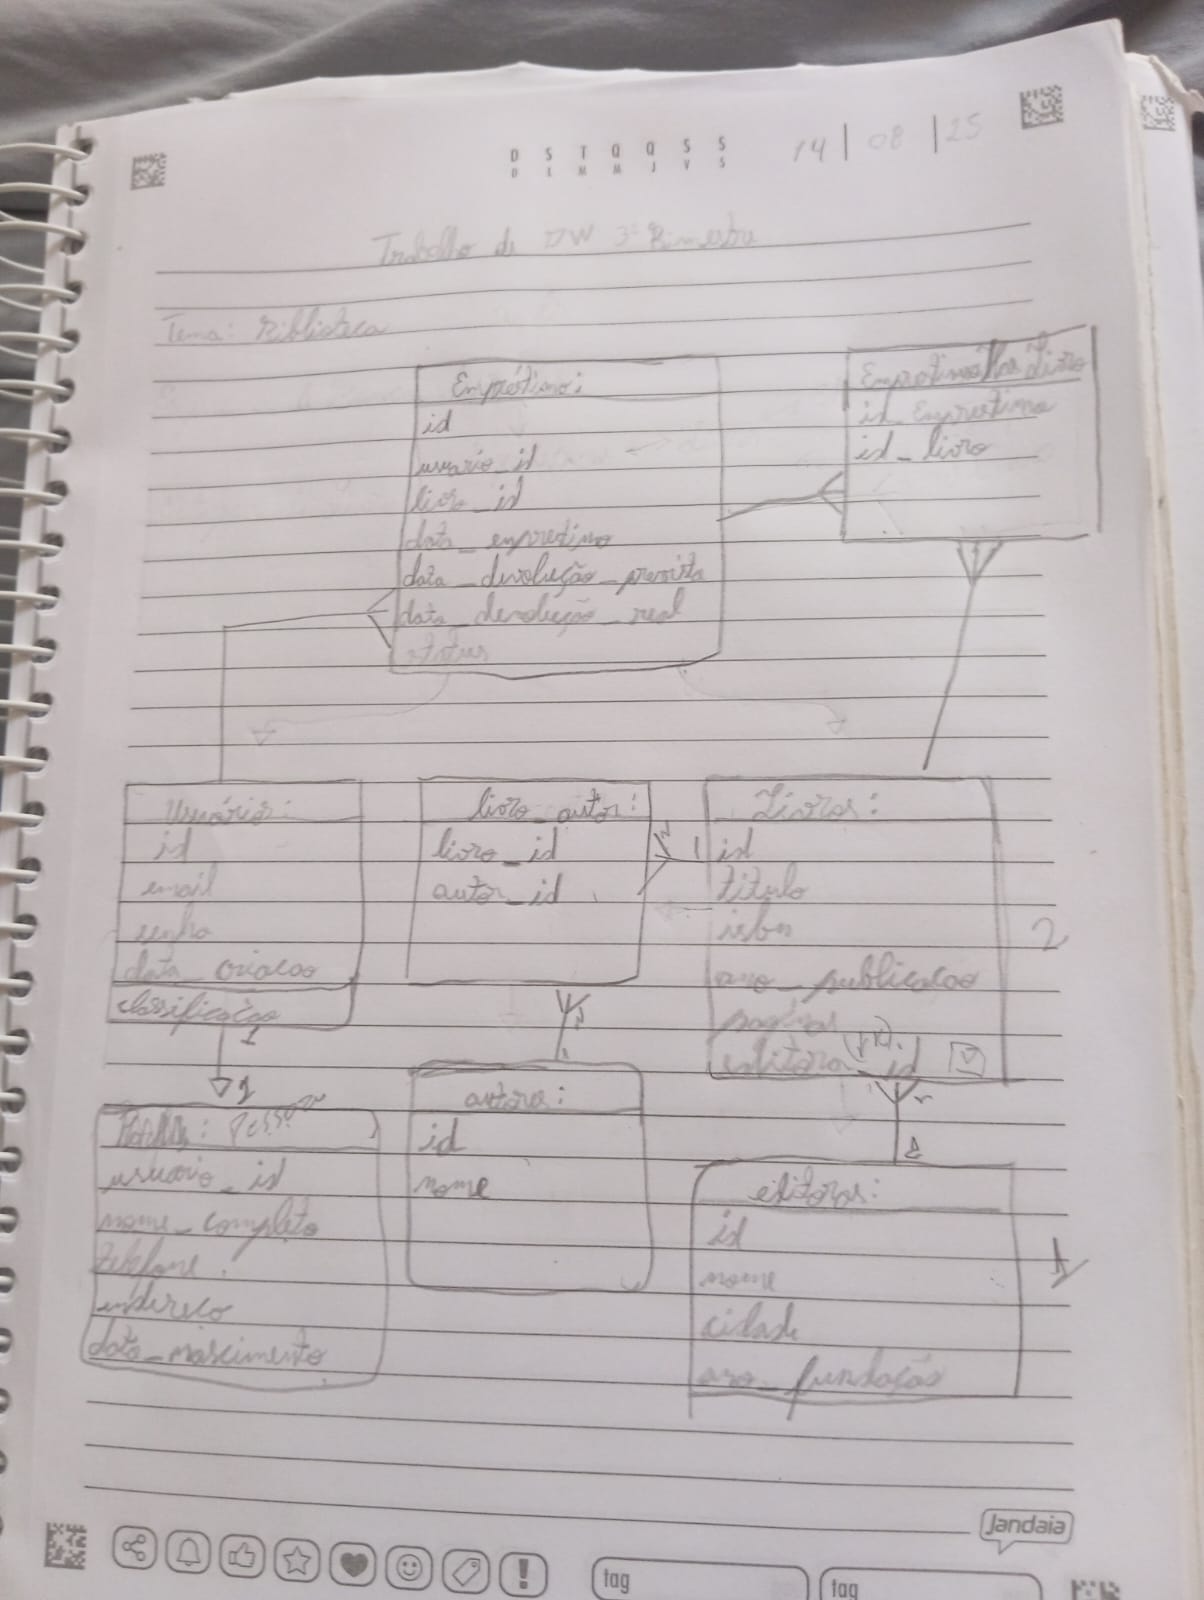 D S T Q Q S S
D L M M J V S
14 | 08 | 25
Trabalho de DW 3º Bimestre
Tema: Biblioteca
Empréstimo:
id
usuario_id
livro_id
data_emprestimo
data_devolução_prevista
data_devolução_real
status
livro
id_Emprestimo
id_livro
Usuários:
id
email
senha
data_criacao
classificação
1
1
livro_autor:
livro_id
autor_id
N
1
Livros:
id
titulo
isbn
ano_publicacao
paginas
editora_id
2
N
autores:
id
nome
Pessoa
usuario_id
nome_completo
telefone
endereco
data_nascimento
editoras:
id
nome
cidade
ano_fundação
1
Jandaia
tag
tag